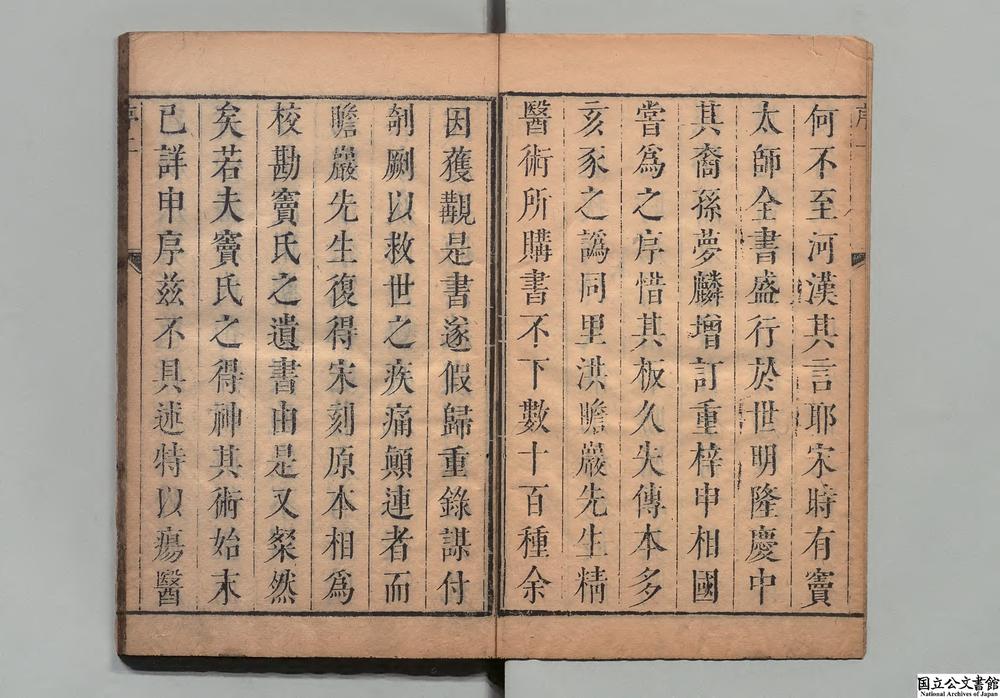 序一
何不至河漢其言耶宋時有竇
太師全書盛行於世明隆慶中
其裔孫夢麟增訂重梓申相國
嘗爲之序惜其板久失傳本多
亥豕之譌同里洪瞻巖先生精
醫術所購書不下數十百種余
因獲觀是書遂假歸重錄謀付
剞劂以救世之疾痛顛連者而
瞻巖先生復得宋刻原本相爲
校勘竇氏之遺書由是又粲然
矣若夫竇氏之得神其術始末
已詳申序茲不具述特以瘍醫
序二
国立公文書館
National Archives of Japan